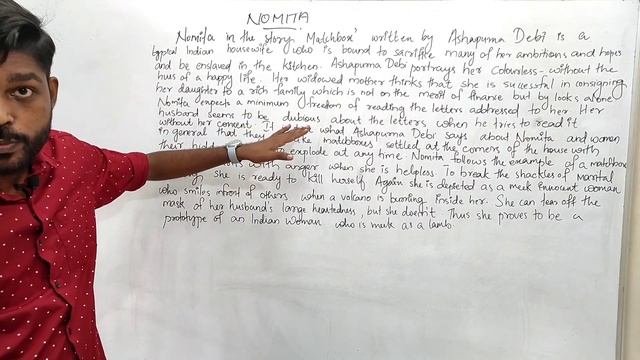 NOMITA
Nomita in the story 'Matchbox' written by Ashapurna Debi is a
typical Indian housewife who is bound to sacrifice many of her ambitions and hopes
and be enslaved in the kitchen. Ashapurna Debi portrays her colourless - without the
hues of a happy life. Her widowed mother thinks that she is sucessful in consigning
her daughter to a rich family which is not on the merit of finance but by looks alone
Nomita expects a minimum freedom of reading the letters addressed to her. Her
husband seems to be dubious about the letters when he tries to read it
without her consent. It what Ashapurna Debi says about Nomita and women
in general that they are like matchboxes, settled at the corners of the house with
their explode at any time. Nomita follows the example of a matchbox
with anger when she is helpless. To break the shackles of marital
she is ready to kill herself. Again she is depicted as a meek innocent woman
who smiles infront of others when a volcano is bursting inside her. She can tear off the
mask of her husband's large heartedness, but she doesn't. Thus she proves to be a
prototype of an Indian Woman who is meek as a lamb.